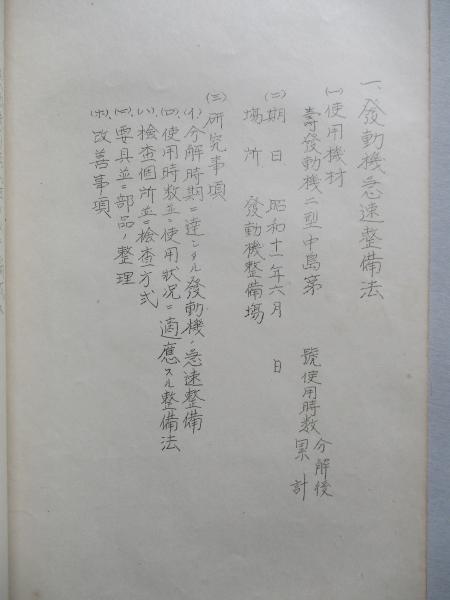 一、發動機急速整備法
㈠使用機材
壽發動機二型中島第　　號使用時数 分解後
累計
㈡期日 昭和十一年六月　日
場所 發動機整備場
㈢研究事項
(イ)分解時期ニ達シタル發動機ノ急速整備
(ロ)使用時数並ニ使用状況ニ適應スル整備法
(ハ)檢査個所並ニ檢査方式
(ニ)要具並ニ部品ノ整理
(ホ)改善事項